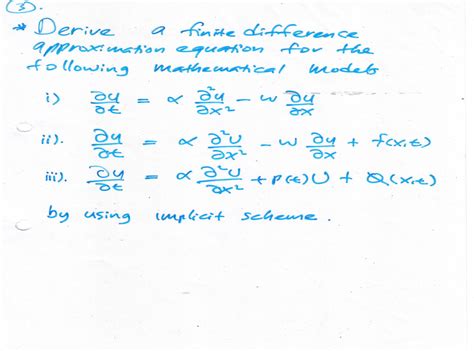 (3).
* Derive a finite difference
approximation equation for the
following mathematical models
i) ∂u/∂t = α ∂²u/∂x² - w ∂u/∂x
ii). ∂u/∂t = α ∂²U/∂x² - w ∂u/∂x + f(x,t)
iii). ∂u/∂t = α ∂²U/∂x² + P(t)U + Q(x,t)
by using implicit scheme.